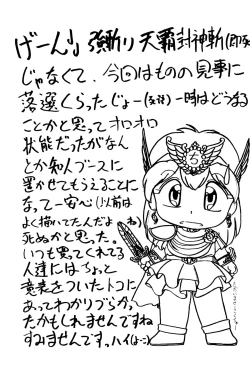 げーん!! 強斬り 天覇封神斬(即
じゃなくて、今回はものの見事に
落選くらったじょー(玄談)一時はどうなる
ことかと思ってオロオロ
状態だったがなん
とか知人ブースに
置かせてもらえることに
なって一安心(以前は
よく描いてたんだよね)
死ぬかと思った。
いつも買ってくれてる
人達にはちょっと
意表をついたトコに
あってわかりづらかっ
たかもしれませんですね
すみませんですっハイ